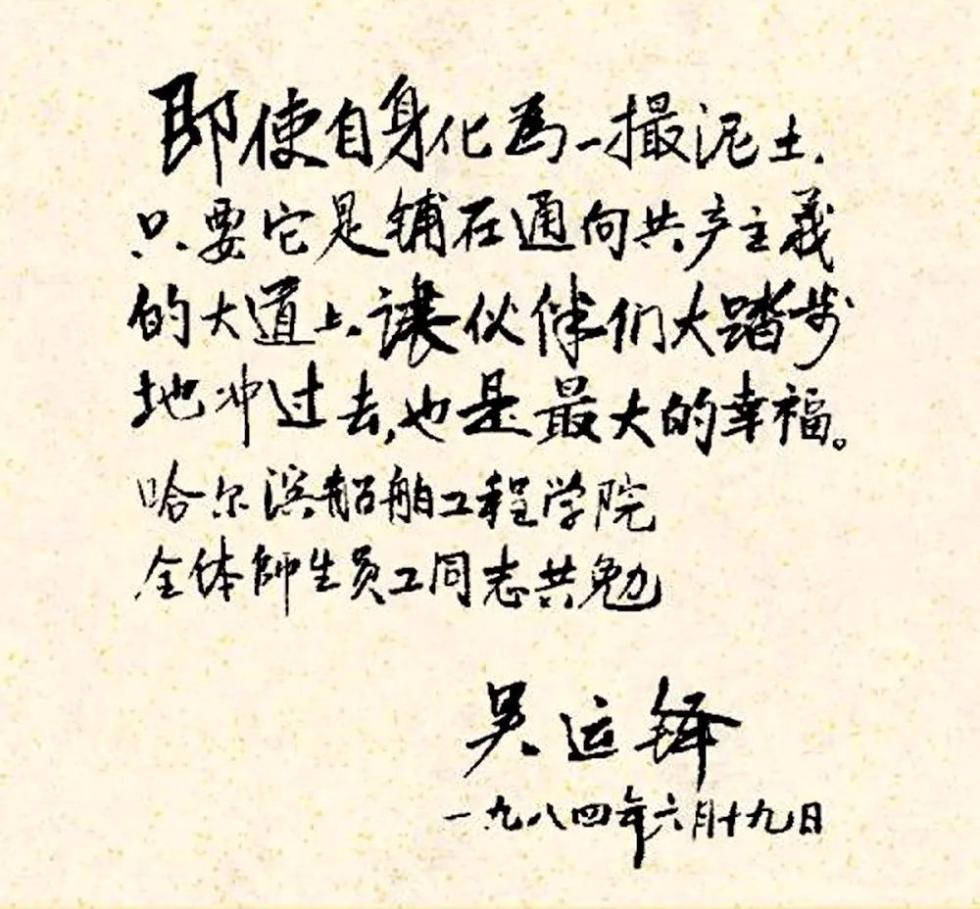 即使自身化为一撮泥土.
只要它是铺在通向共产主義
的大道上.讓伙伴们大踏步
地冲过去,也是最大的幸福。
哈尔滨船舶工程学院
全体師生员工同志共勉
吴运铎
一九八四年六月十九日